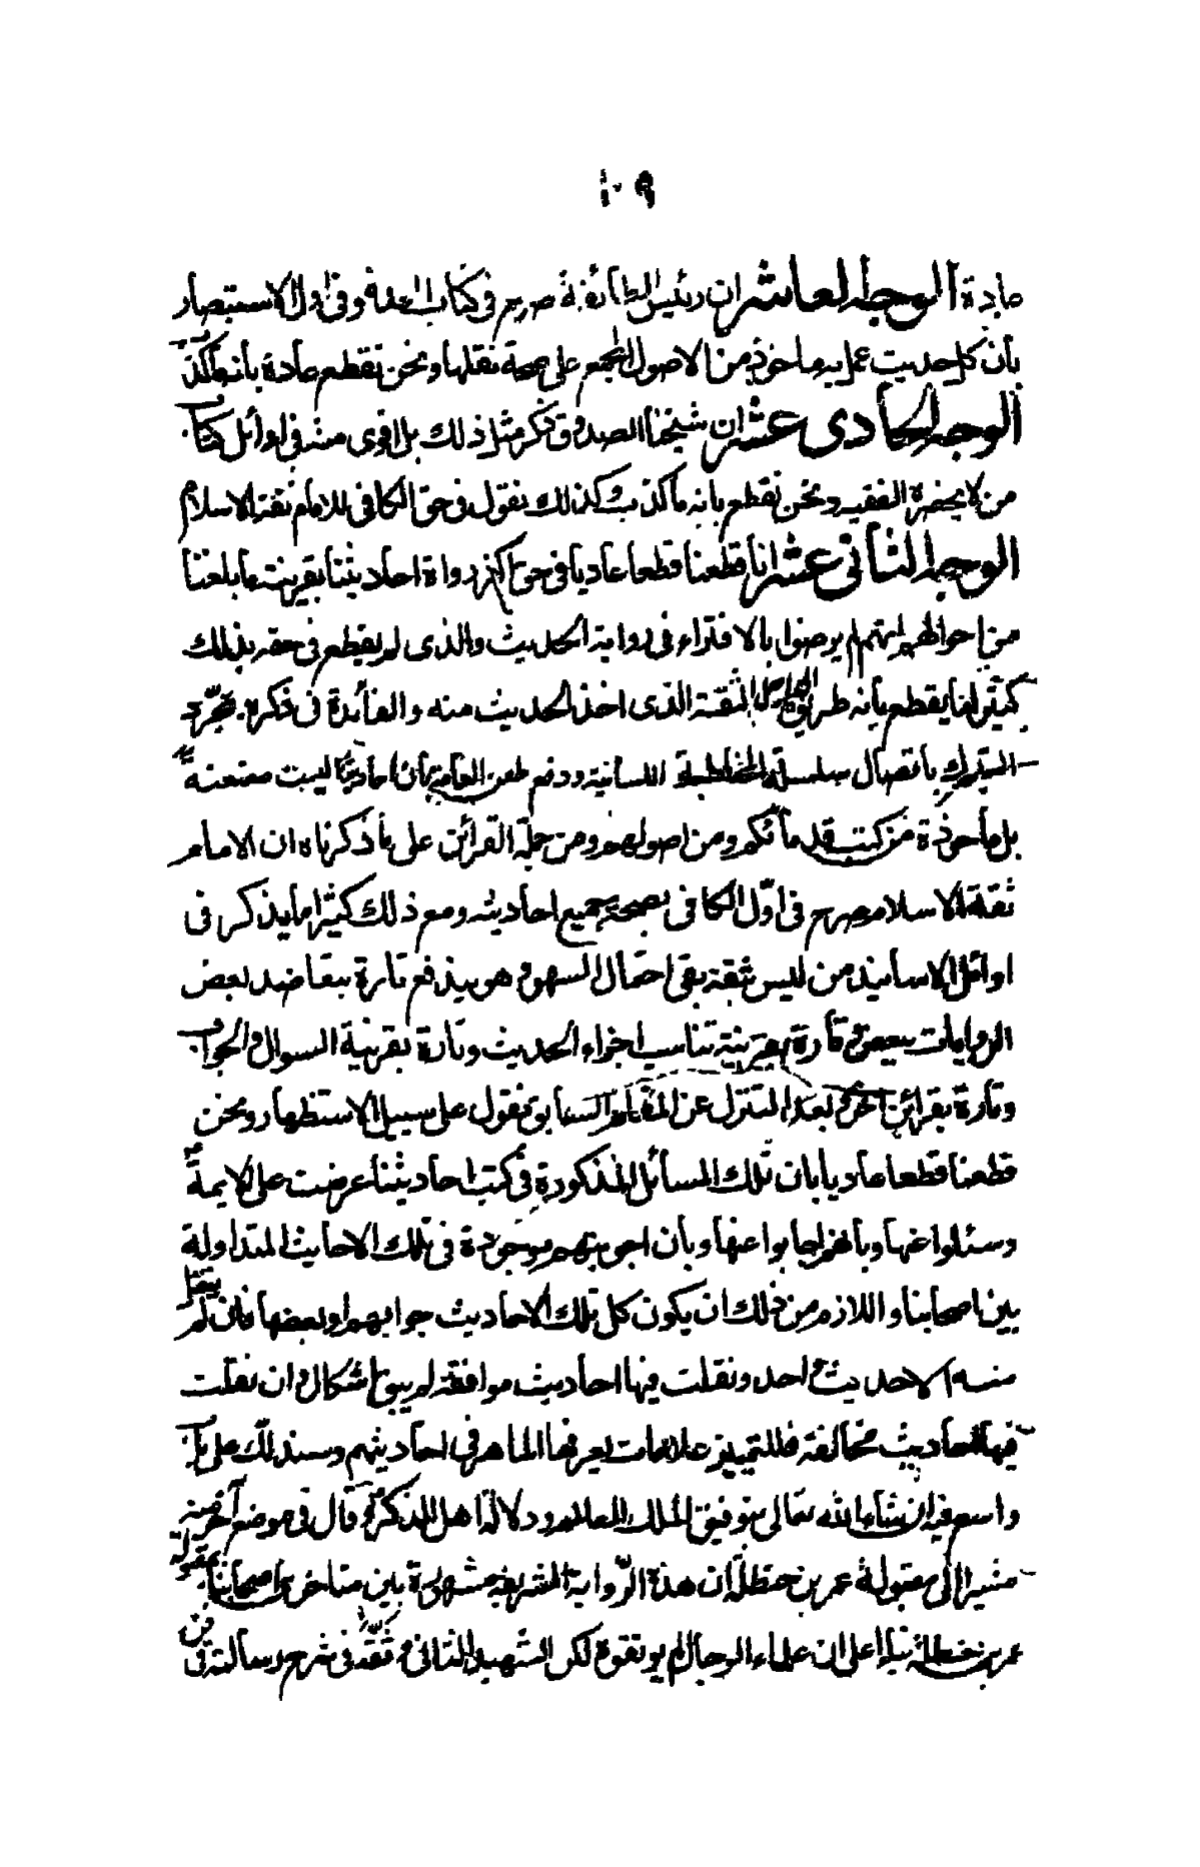 ١٠٩
عادة الوجه العاشر ان رئيس الطائفة صرح في كتاب العدة وفي اول الاستبصار
بأن كل حديث عمل به ماخوذ من الاصول المجمع على صحة نقلها ونحن نقطع عادة بأنه ما كذب
الوجه الحادى عشر ان شيخنا الصدوق ذكر مثل ذلك بل اقوى منه في اوائل كتاب
من لا يحضره الفقيه ونحن نقطع بانه ما كذب وكذلك نقول في حق الكافى للامام ثقة الاسلام
الوجه الثانى عشر انا قطعنا قطعا عاديا في حق اكثر رواة احاديثنا بقرينة ما بلغنا
من احوالهم انهم لم يرضوا بالافتراء في رواية الحديث والذى لم يقطع في حقه بذلك
كثيرا ما يقطع بأنه طريق الى اصل الثقة الذى اخذ الحديث منه والفائدة في ذكره مجرد
التبرك باتصال سلسلة المخاطبة اللسانية ودفع طعن العامة بأن احاديثنا ليست معنعنة
بل مأخوذة من كتب قدمائكم ومن اصولهم ومن جملة القرائن على ما ذكرناه ان الامام
ثقة الاسلام صرح في اول الكافى بصحة جميع احاديثه ومع ذلك كثيرا ما يذكر في
اوائل الاسانيد من ليس بثقة بقى احتمال السهو وهو يندفع تارة بتعاضد بعض
الروايات ببعض وتارة بقرينة تناسب اجزاء الحديث وتارة بقرينة السوال والجواب
وتارة بقرائن اخرى بعد التنزل عن المقام السابق نقول على سبيل الاستظهار ونحن
قطعنا قطعا عاديا بان تلك المسائل المذكورة في كتب احاديثنا عرضت على الايمة ع
وسئلوا عنها وبأنهم اجابوا عنها وبأن اجوبتهم موجودة في تلك الاحايث المتداولة
بين اصحابنا واللازم من ذلك ان يكون كل تلك الاحاديث جوابهم او بعضها فان لم ينقل
منه الا حديث واحد ونقلت فيها احاديث موافقة لم يبق اشكال وان نقلت
فيها احاديث مخالفة فللتمييز علامات يعرفها الماهر في احاديثهم وسندلك على باب
واسع فيه ان شاء الله تعالى بتوفيق الملك العلام ودلالة اهل الذكر ع وقال في موضع آخر منه
مشيرا الى مقبولة عمر بن حنظلة ان هذه الرواية الشريفة مشهورة بين متاخرى اصحابنا بمقبولة
عمر بن حنظلة بناء على ان علماء الرجال لم يوثقوه لكن الشهيد الثانى وثقه في شرح رسالته في فن